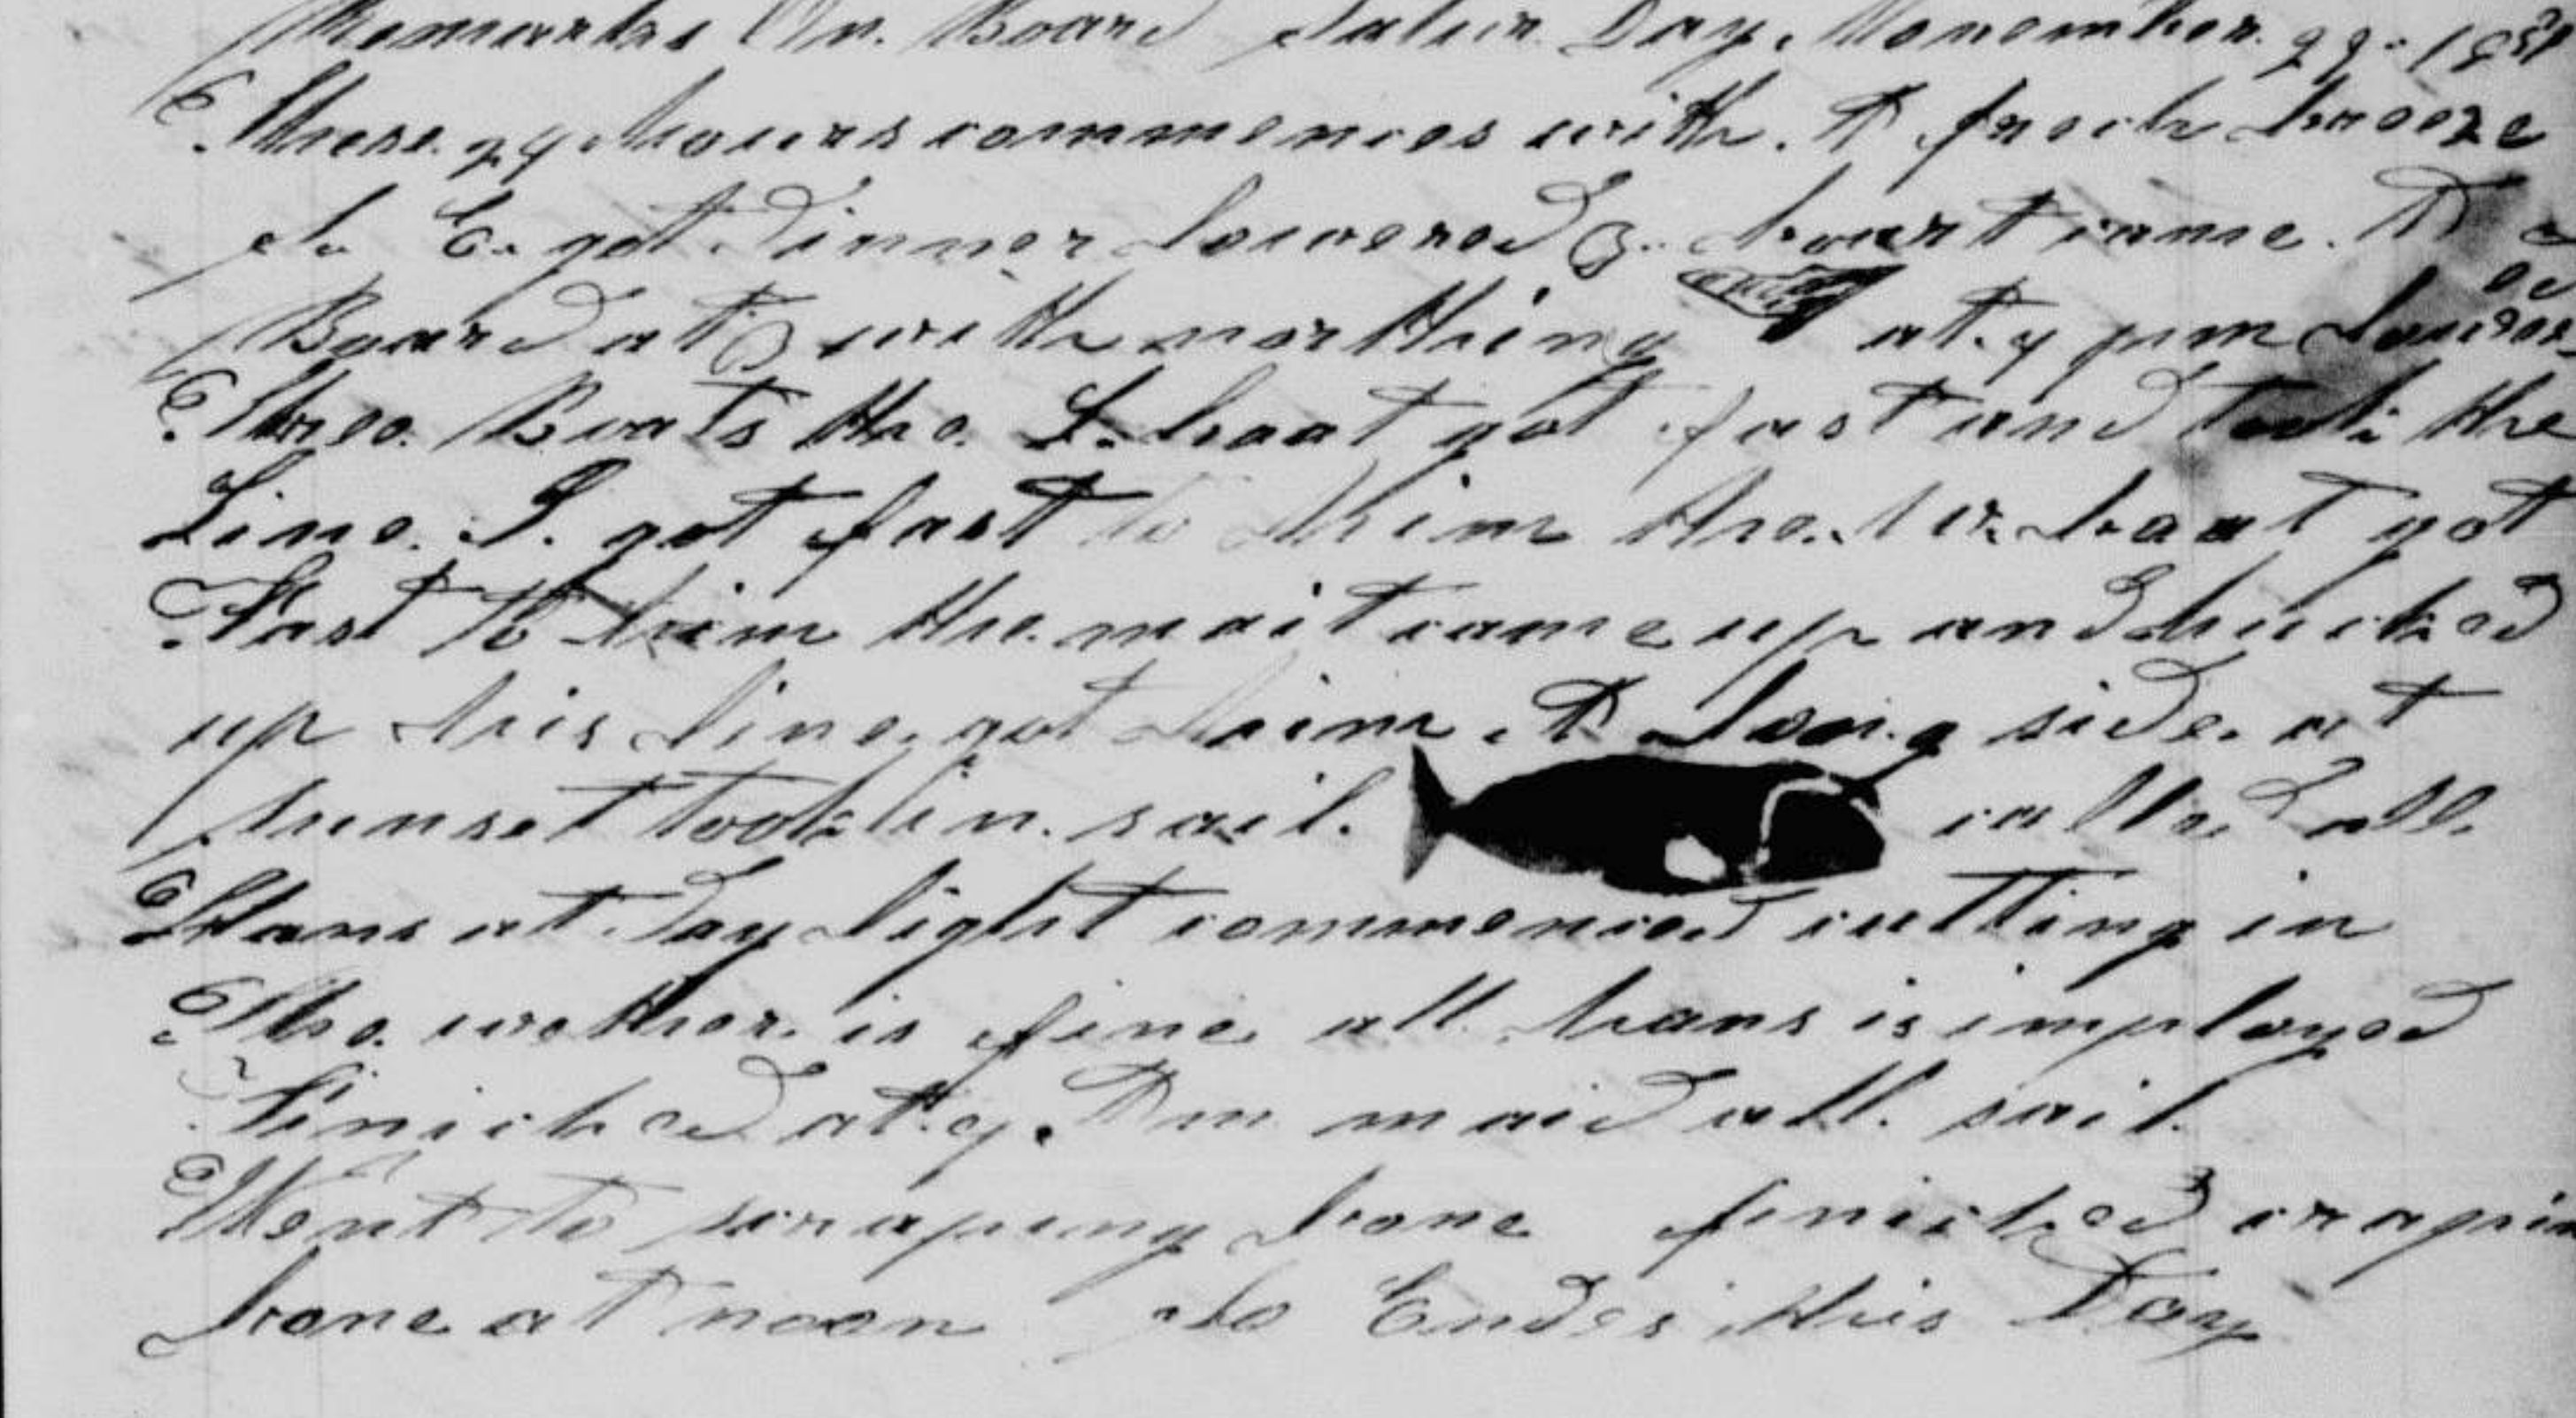 Remarks On. Board Satur Day. November. 22-185
These. 24 hours commences with. A fresh breeze
S. E. got Dinner lowered 3. boart came. A
Board at 3 with northing at. 4 pm lowered
Three. Boats the. L. boat got fast and took the
Line. I. got fast to him the. W. boat got
Fast to him the. mait came up and hucked
up his line. got him. A Long side. at
sunset took in. sail. called all.
Hans at. Day light commenced cutting in
The. wether. is fine all. hans is imployed
Finiched at 9. Am maid all. sail.
Went to scraping bone finiched craping
bone at noon So Endes this Day